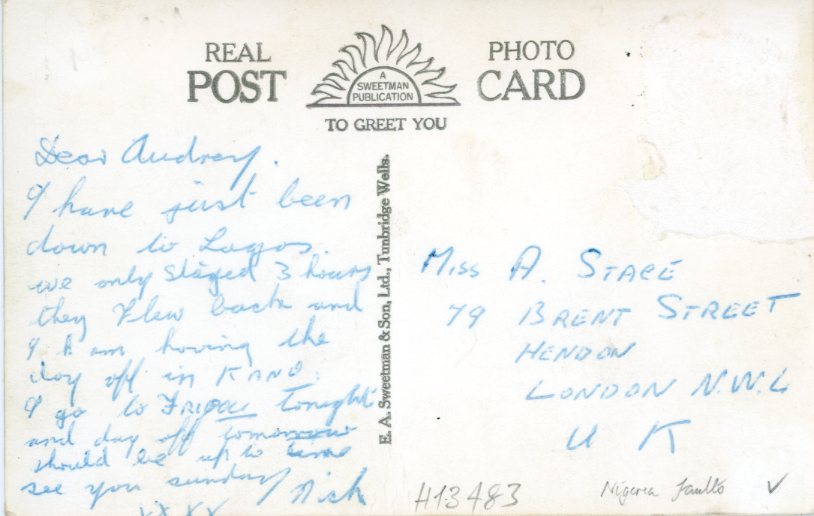 REAL PHOTO
POST CARD
A
SWEETMAN
PUBLICATION
TO GREET YOU
Dear Audrey.
I have just been
down to Lagos.
we only stayed 3 hours
they flew back and
I am having the
day off in KANO.
I go to tonight
and day off tomorrow
should be up to time
see you sunday Nick
XXXX
E. A. Sweetman & Son, Ltd., Tunbridge Wells.
MISS A. STACE
79 BRENT STREET
HENDON
LONDON N.W.4
U K
H13483
Nigeria faults ✓